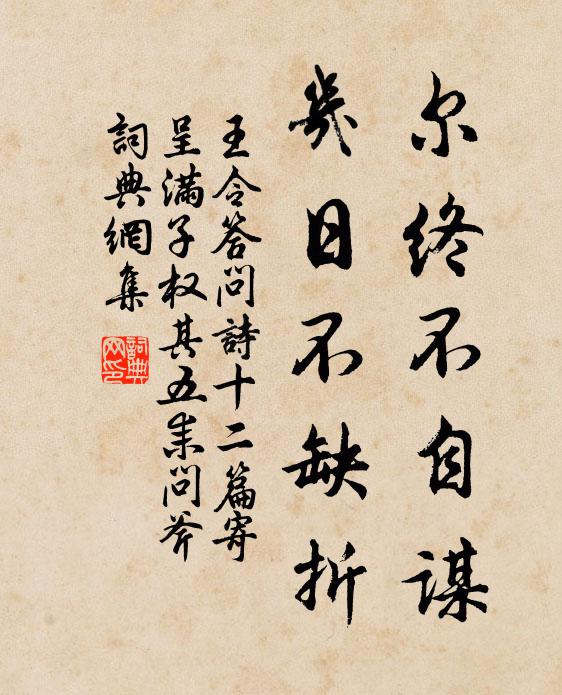 尔终不自谋
几日不缺折
王令答问詩十二篇寄
呈满子权其五耒问斧
詞典網集
詞典網印